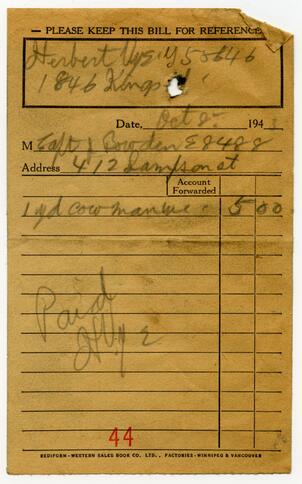 — PLEASE KEEP THIS BILL FOR REFERENCE
Herbert Pye Y58646
1846 Kings
Date, Oct 2 1943
M Capt J Bowden E8488
Address 412 Lampson st
Account
Forwarded
1 yd cow manure 5 00
Paid
H Pye
44
REDIFORM-WESTERN SALES BOOK CO. LTD., FACTORIES-WINNIPEG & VANCOUVER